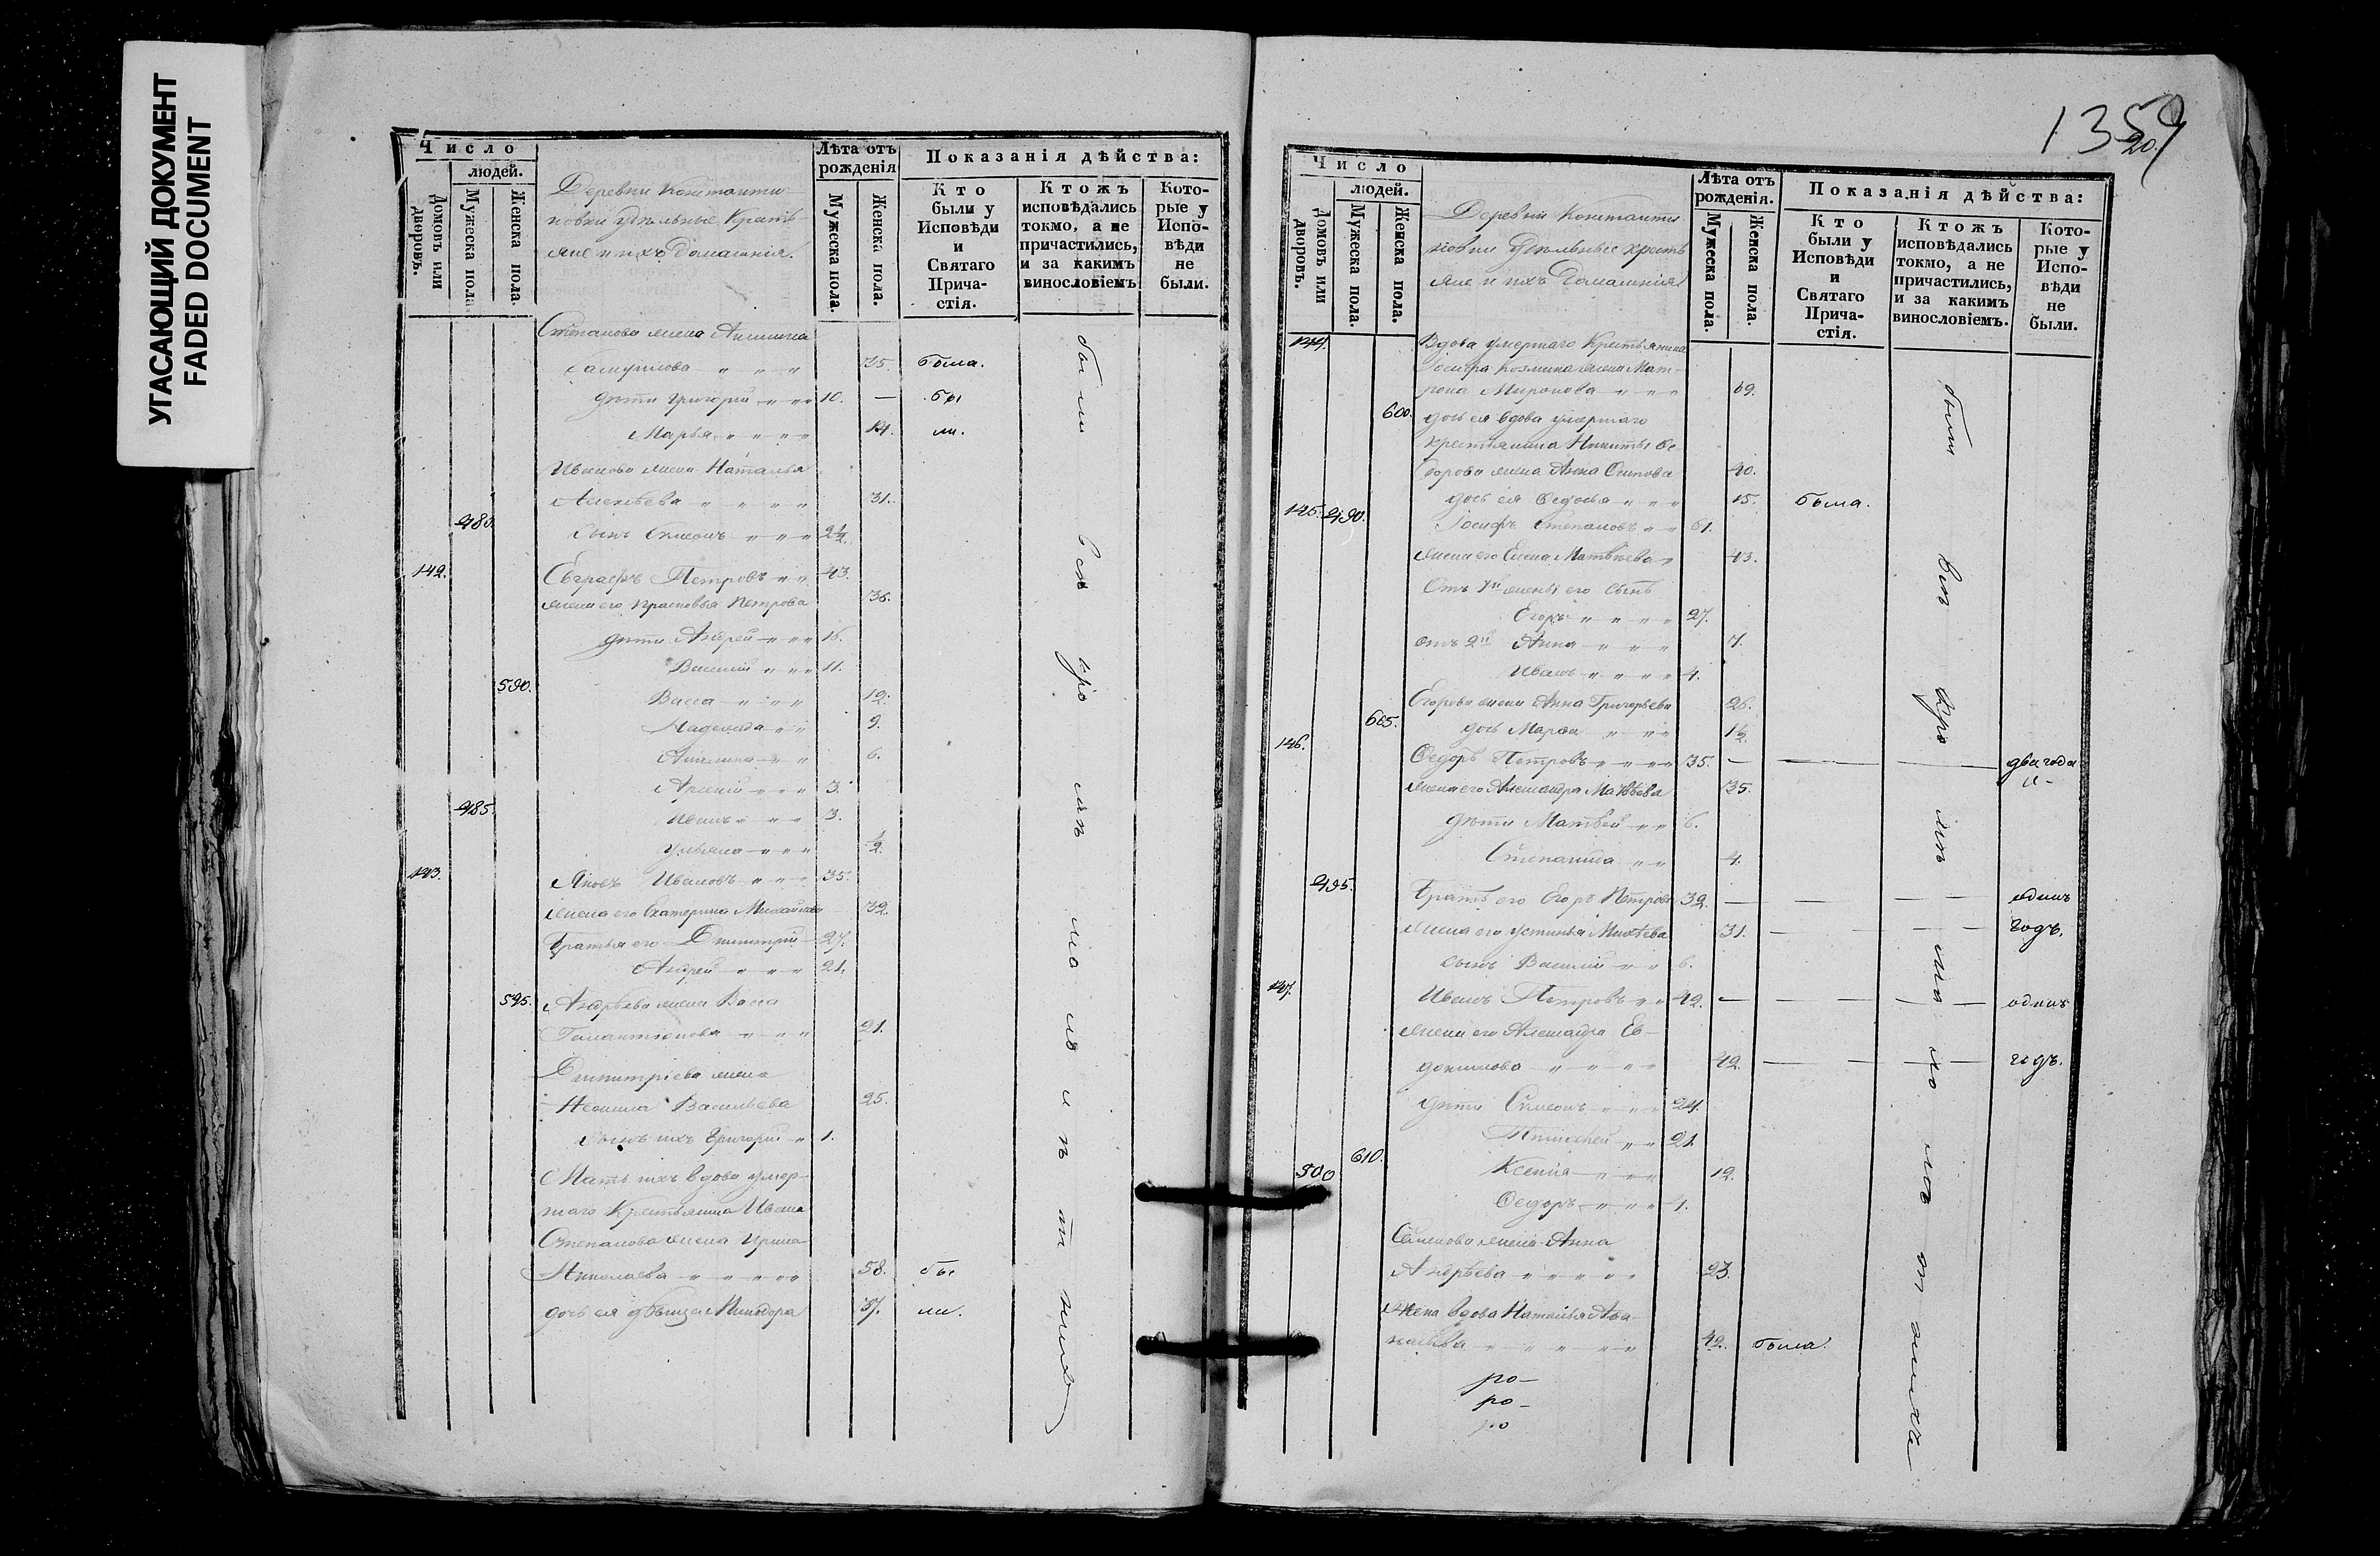 УГАСАЮЩИЙ ДОКУМЕНТ
FADED DOCUMENT
Число
людей.
Домовъ или дворовъ.
Мужеска пола.
Женска пола.
Деревни Константи-
новки Удѣльные Крестья-
яне и ихъ домашнія.
Лѣта отъ рожденія
Мужеска пола.
Женска пола.
Показанія дѣйства:
Кто были у Исповѣди и Святаго Прича-стія.
Ктожъ исповѣдались токмо, а не причастились, и за какимъ винословіемъ
Кото-рые у Испо-вѣди не были.
Степанова жена Акилина
Самуилова 35. была.
дѣти Григорій 10. — бы
Марья 14. ли.
Иванова жена Наталья
Алексѣева 31.
480. сынъ Симеонъ 2½
142. Евграфъ Петровъ 43.
жена его Прасковья Петрова 36.
дѣти Андрей 16.
Василій 11.
590. Васса 12.
Надежда 9.
6.
Арсеній 3.
485. Иванъ 3.
Ульяна ½
143. Яковъ Ивановъ 35.
жена его Екатерина Михайлова 32.
Братья его Димитрій 27.
Андрей 21.
595. Андрѣева жена Васса
21.
Димитріева жена
Васильева 25.
сынъ ихъ Григорій 1.
Мать ихъ вдова умер-
шаго Крестьянина Ивана
Степанова жена Ирина
Николаева 58. бы
дочь ея дѣвица Минодора 37. ли.
были всѣ кромѣ малолѣтнихъ
1359
20.
Число
людей.
Домовъ или дворовъ.
Мужеска пола.
Женска пола.
Деревни Константи
новки Удѣльные кресть
яне и ихъ домашнія
Лѣта отъ рожденія.
Мужеска пола.
Женска пола.
Показанія дѣйства:
Кто были у Исповѣди и Святаго Прича-стія.
Ктожъ исповѣдались токмо, а не причастились, и за какимъ винословіемъ.
Кото-рые у Испо-вѣди не были.
144. Вдова умершаго Крестьянина
Козмина жена Мат-
рона Миронова 69.
600. дочь ея вдова умершаго
крестьянина Никиты Ѳе
дорова жена Анна Осипова 40.
дочь ея Ѳедосья 15. была.
145. 490. Іосифъ Степановъ 61.
жена его Елена Матвѣева 43.
Отъ 1й жены его сынъ
Егоръ 27.
отъ 2й Анна 7.
Иванъ 4.
Егорова жена Анна Григорьева 26.
605. дочь Марѳа 1½
146. Ѳедоръ Петровъ 35. — — — два года
жена его Александра Матвѣева 35. —
дѣти Матвей 6.
Степанида 4.
495. Братъ его Егоръ Петровъ 32. — — — одинъ
жена его Устинья Михѣева 31. — — годъ.
сынъ Василій 6.
147. Иванъ Петровъ 42. — — — одинъ
жена его Александра Ев-
докимова 42. — — годъ.
дѣти Симеонъ 24.
Тимофей 21.
610. Ксенія 12.
500 Ѳедоръ 1.
Семенова жена Анна
Андрѣева 23.
жена вдова Наталья Аѳа-
насьева 42. была.
ро-
ро-
ро
были всѣ кромѣ малолѣтнихъ